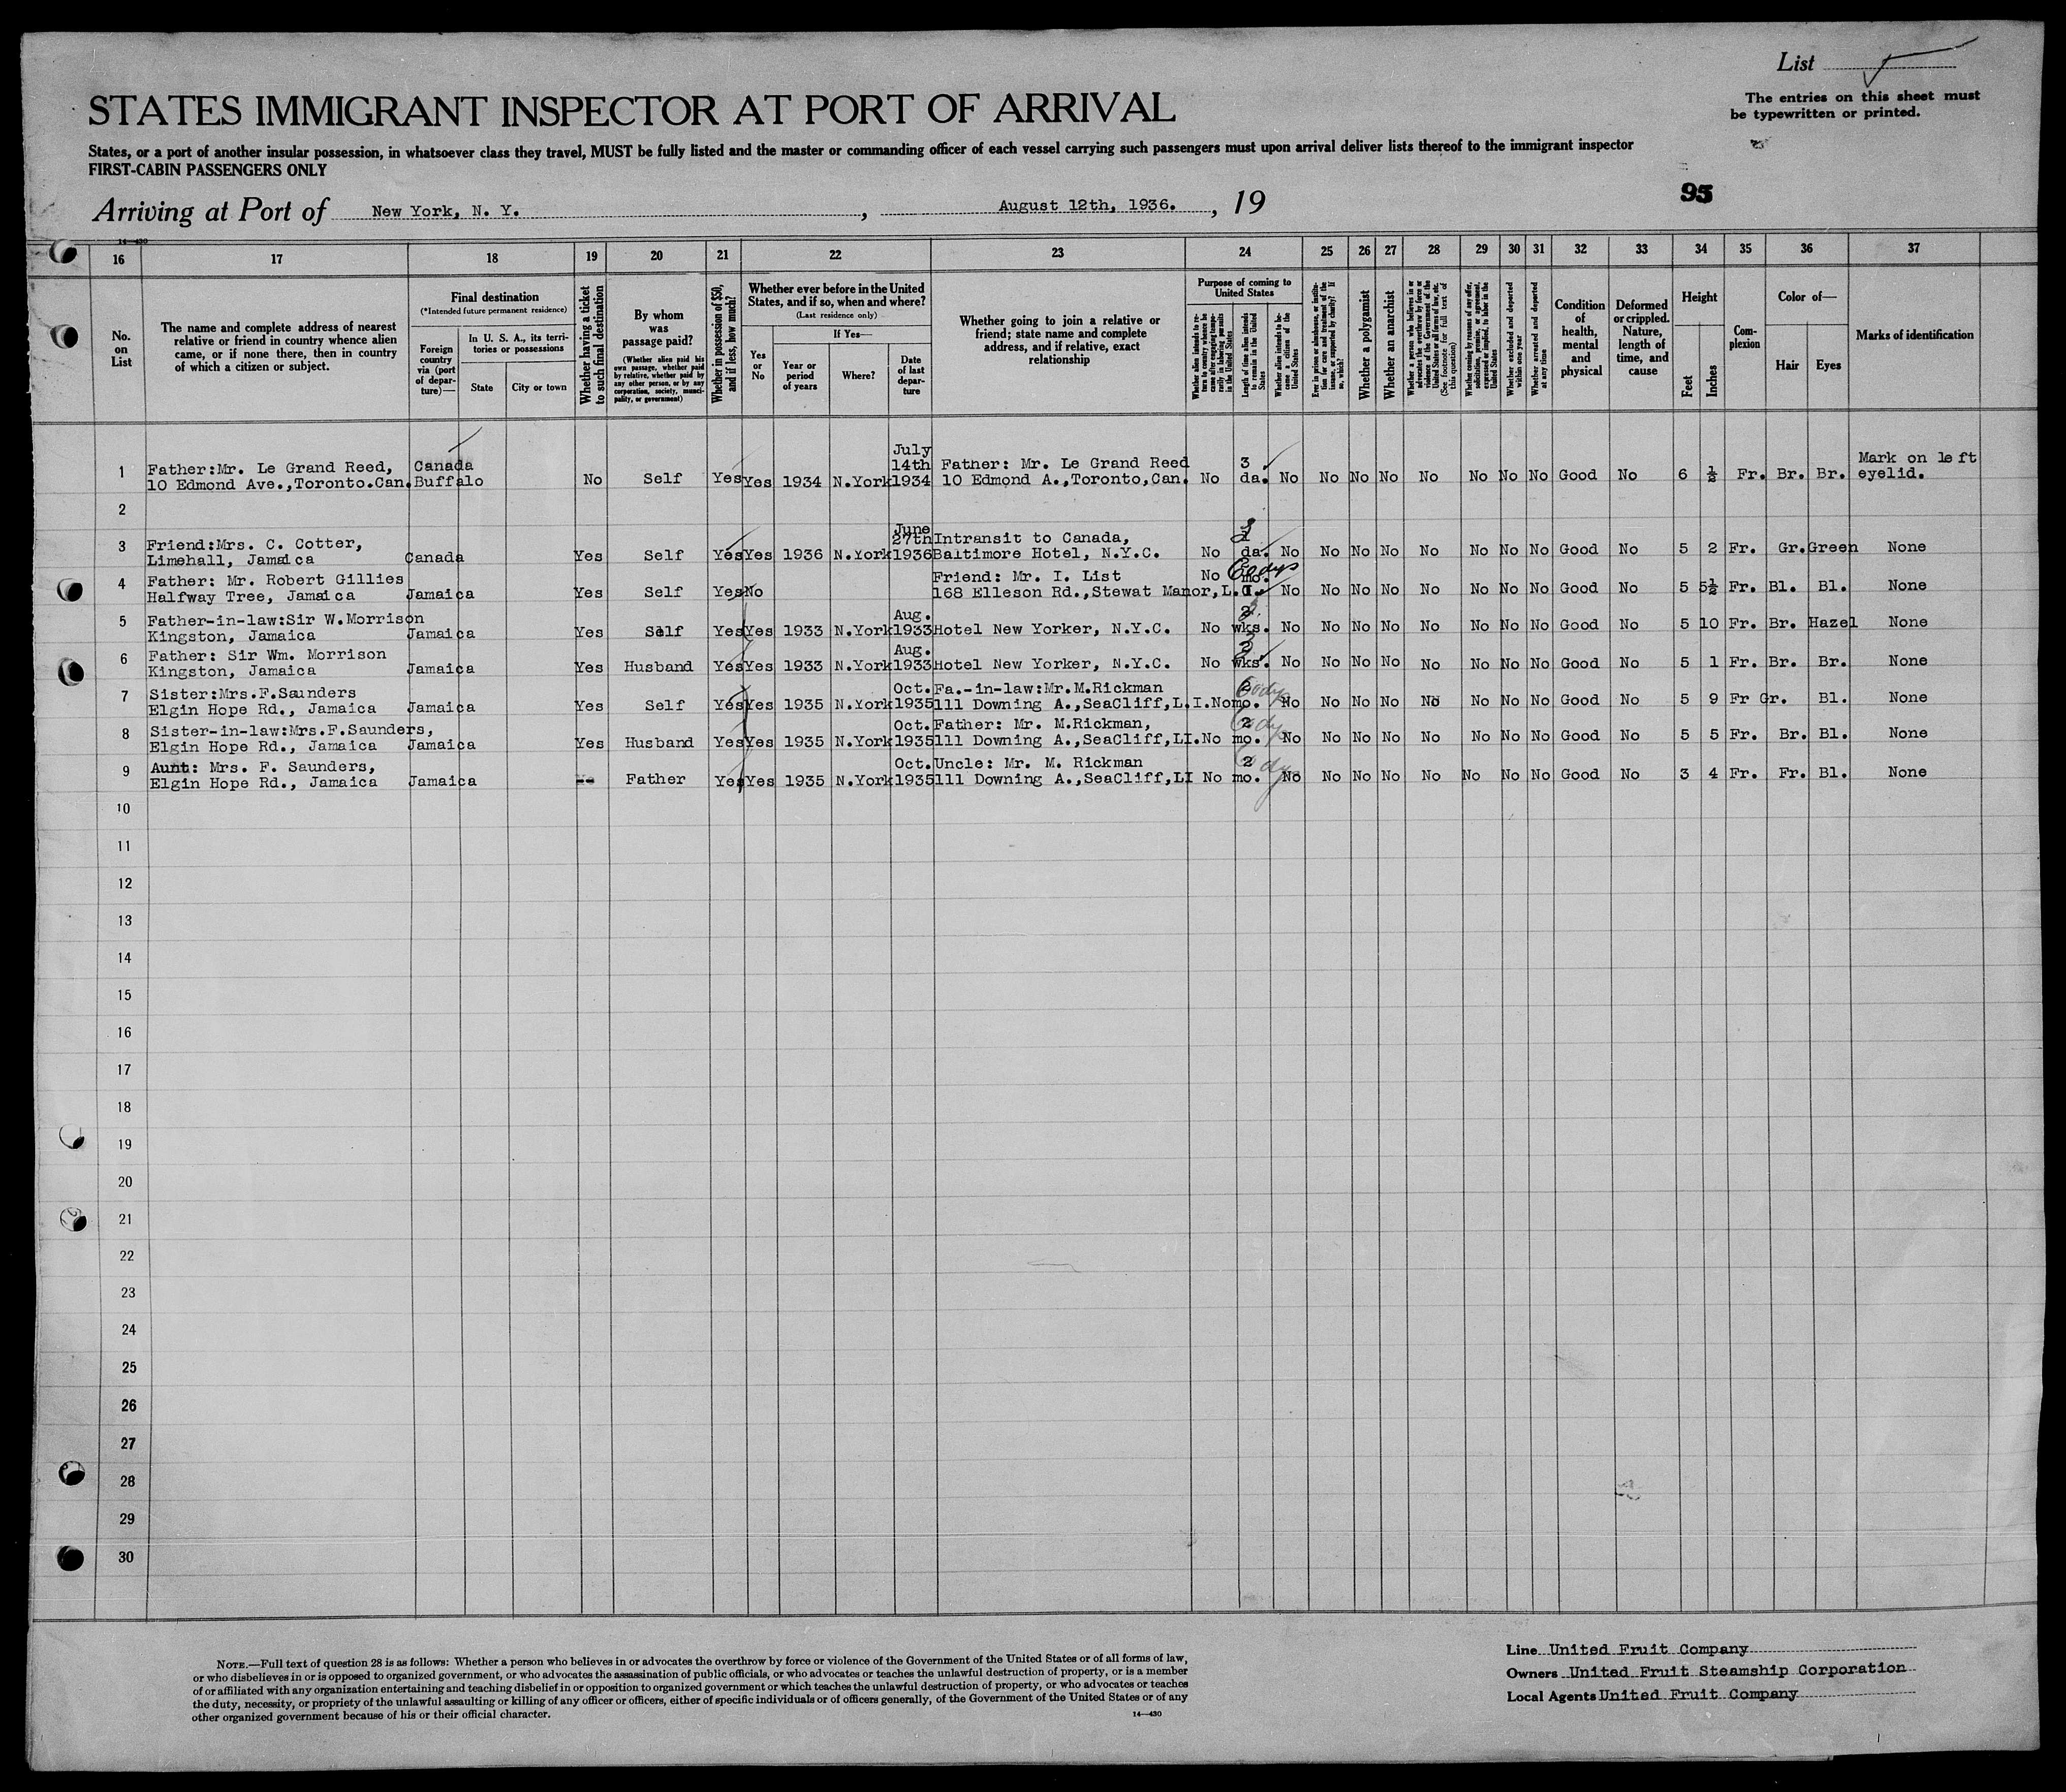 List
The entries on this sheet must
be typewritten or printed.
STATES IMMIGRANT INSPECTOR AT PORT OF ARRIVAL
States, or a port of another insular possession, in whatsoever class they travel, MUST be fully listed and the master or commanding officer of each vessel carrying such passengers must upon arrival deliver lists thereof to the immigrant inspector
FIRST-CABIN PASSENGERS ONLY
95
Arriving at Port of New York, N. Y., August 12th, 1936., 19
14—430
16 17 18 19 20 21 22 23 24 25 26 27 28 29 30 31 32 33 34 35 36 37
No. on List
The name and complete address of nearest relative or friend in country whence alien came, or if none there, then in country of which a citizen or subject.
Final destination
(*Intended future permanent residence)
Foreign country via (port of departure)—
In U. S. A., its territories or possessions
State
City or town
Whether having a ticket to such final destination
By whom was passage paid?
(Whether alien paid his own passage, whether paid by relative, whether paid by any other person, or by any corporation, society, municipality, or government)
Whether in possession of $50, and if less, how much?
Whether ever before in the United States, and if so, when and where?
(Last residence only)
Yes or No
If Yes—
Year or period of years
Where?
Date of last departure
Whether going to join a relative or friend; state name and complete address, and if relative, exact relationship
Purpose of coming to United States
Length of time alien intends to remain in the United States
Whether alien intends to become a citizen of the United States
Whether a polygamist
Whether an anarchist
Whether excluded and deported within one year
Whether arrested and deported at any time
Condition of health, mental and physical
Deformed or crippled. Nature, length of time, and cause
Height
Feet
Inches
Complexion
Color of—
Hair
Eyes
Marks of identification
1 Father:Mr. Le Grand Reed, 10 Edmond Ave.,Toronto.Can. Canada Buffalo No Self Yes Yes 1934 N.York July 14th 1934 Father: Mr. Le Grand Reed 10 Edmond A.,Toronto,Can. No 3 da. No No No No No No No No Good No 6 ½ Fr. Br. Br. Mark on left eyelid.
2
3 Friend:Mrs. C. Cotter, Limehall, Jamaica Canada Yes Self Yes Yes 1936 N.York June 27th 1936 Intransit to Canada, Baltimore Hotel, N.Y.C. No da. No No No No No No No No Good No 5 2 Fr. Gr. Green None
4 Father: Mr. Robert Gillies Halfway Tree, Jamaica Jamaica Yes Self Yes No Friend: Mr. I. List 168 Elleson Rd.,Stewat Manor,L.I. No mo. 60 dys No No No No No No No No Good No 5 5½ Fr. Bl. Bl. None
5 Father-in-law:Sir W.Morrison Kingston, Jamaica Jamaica Yes Self Yes Yes 1933 N.York Aug. 1933 Hotel New Yorker, N.Y.C. No 2 wks. No No No No No No No No Good No 5 10 Fr. Br. Hazel None
6 Father: Sir Wm. Morrison Kingston, Jamaica Jamaica Yes Husband Yes Yes 1933 N.York Aug. 1933 Hotel New Yorker, N.Y.C. No wks. No No No No No No No No Good No 5 1 Fr. Br. Br. None
7 Sister:Mrs.F.Saunders Elgin Hope Rd., Jamaica Jamaica Yes Self Yes Yes 1935 N.York Oct. 1935 Fa.-in-law:Mr.M.Rickman 111 Downing A.,SeaCliff,L.I. No mo. 60 dys No No No No No No No No Good No 5 9 Fr Gr. Bl. None
8 Sister-in-law:Mrs.F.Saunders, Elgin Hope Rd., Jamaica Jamaica Yes Husband Yes Yes 1935 N.York Oct. 1935 Father: Mr. M.Rickman, 111 Downing A.,SeaCliff,LI. No 2 mo. 60 dys No No No No No No No No Good No 5 5 Fr. Br. Bl. None
9 Aunt: Mrs. F. Saunders, Elgin Hope Rd., Jamaica Jamaica Father Yes Yes 1935 N.York Oct. 1935 Uncle: Mr. M. Rickman 111 Downing A.,SeaCliff,LI No 2 mo. 60 dy No No No No No No No No Good No 3 4 Fr. Fr. Bl. None
10
11
12
13
14
15
16
17
18
19
20
21
22
23
24
25
26
27
28
29
30
NOTE.—Full text of question 28 is as follows: Whether a person who believes in or advocates the overthrow by force or violence of the Government of the United States or of all forms of law,
or who disbelieves in or is opposed to organized government, or who advocates the assassination of public officials, or who advocates or teaches the unlawful destruction of property, or is a member
of or affiliated with any organization entertaining and teaching disbelief in or opposition to organized government or which teaches the unlawful destruction of property, or who advocates or teaches
the duty, necessity, or propriety of the unlawful assaulting or killing of any officer or officers, either of specific individuals or of officers generally, of the Government of the United States or of any
other organized government because of his or their official character.
14—430
Line United Fruit Company
Owners United Fruit Steamship Corporation
Local Agents United Fruit Company